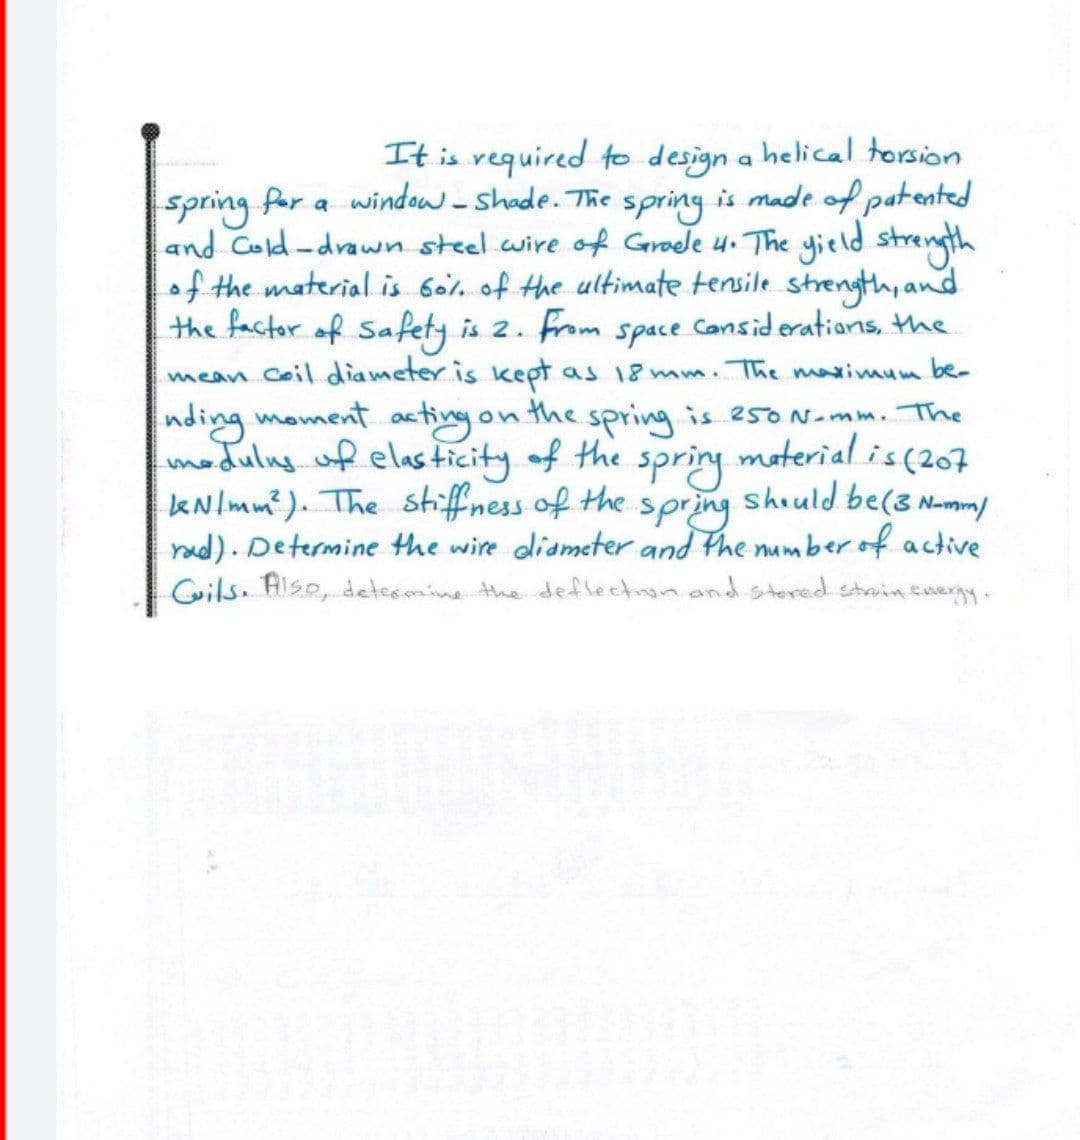 It is required to design a helical torsion
spring for a window - shade. The spring is made of patented
and Cold-drawn steel wire of Grade 4. The yield strength
of the material is 60%. of the ultimate tensile strength, and
the factor of safety is 2. From space Considerations, the
mean coil diameter is kept as 18 mm. The maximum be-
nding moment acting on the spring is 250 N-mm. The
modulus of elasticity of the spring material is (207
kN/mm²). The stiffness of the spring should be (3 N-mm/
rad). Determine the wire diameter and the number of active
Coils. Also, determine the deflection and stored strain energy.